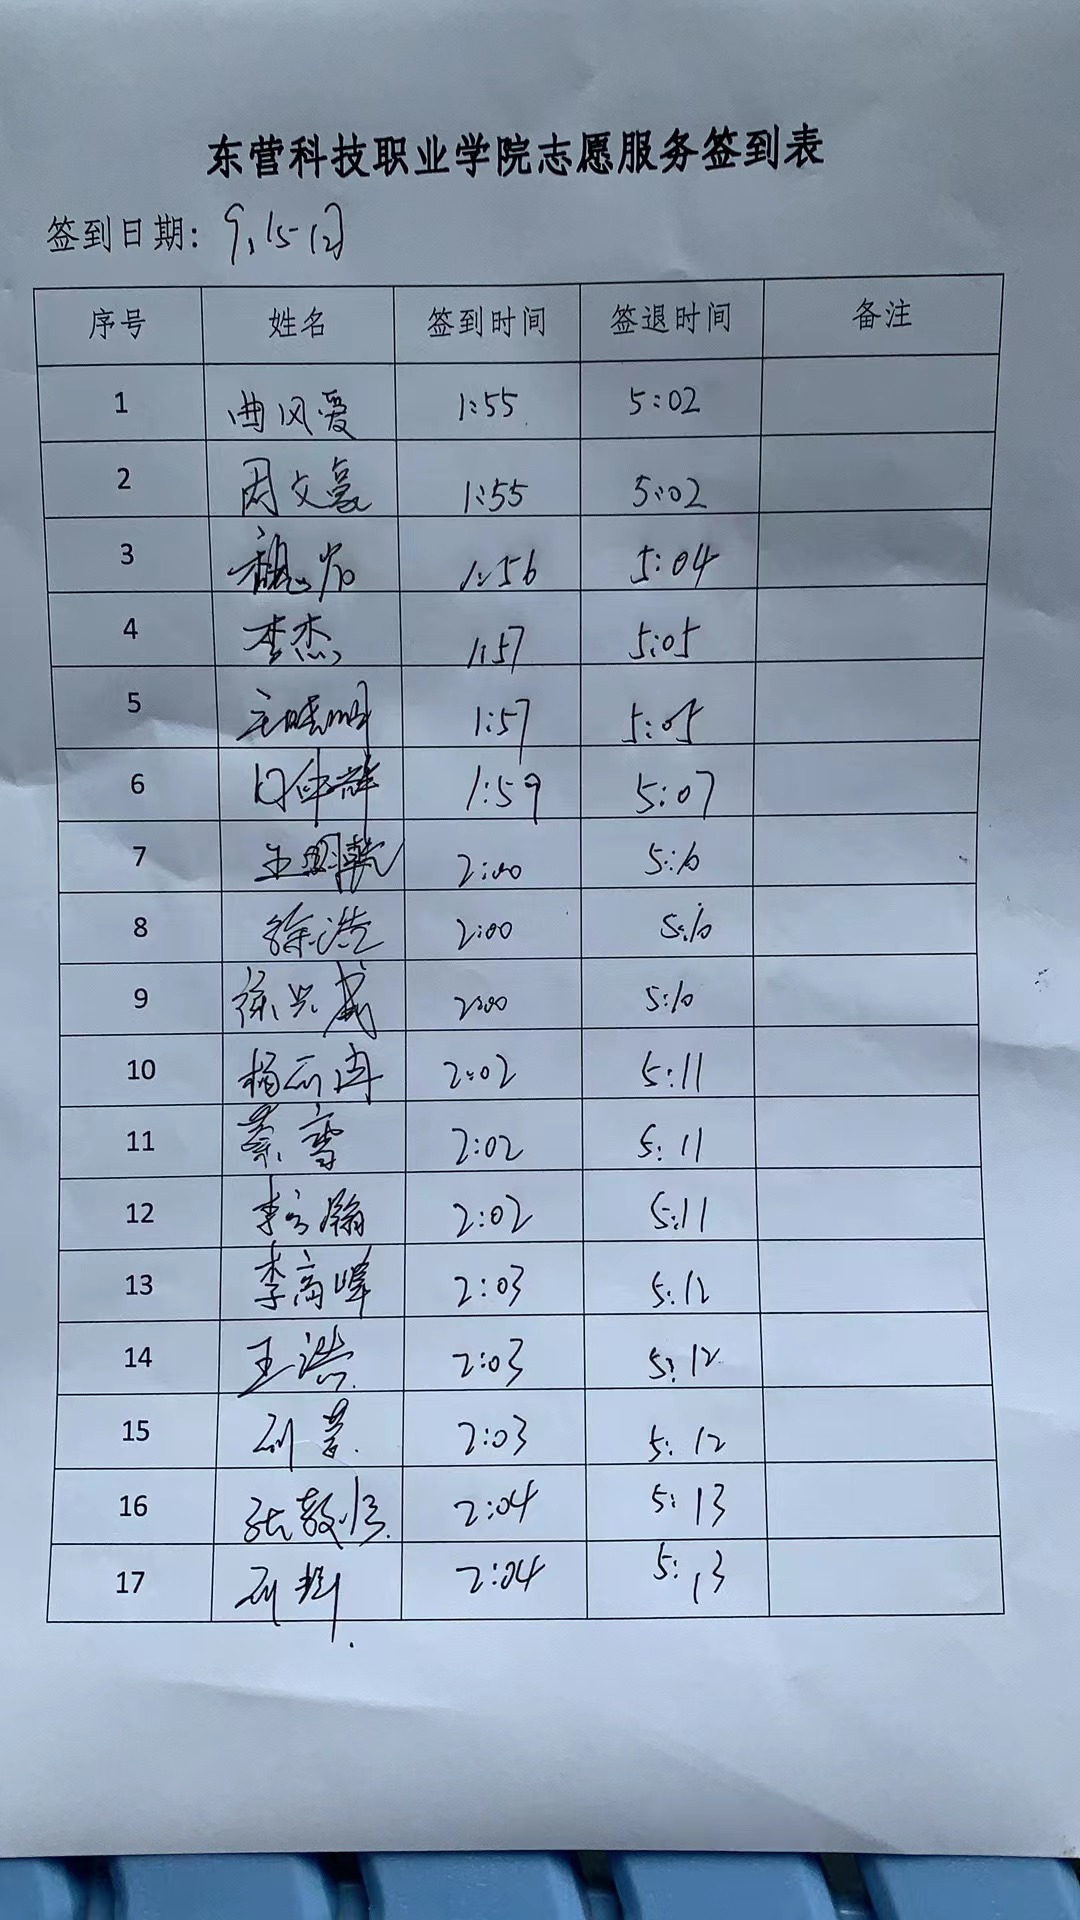 东营科技职业学院志愿服务签到表
签到日期: 9.15
序号 姓名 签到时间 签退时间 备注
1 曲风爱 1:55 5:02
2 周文豪 1:55 5:02
3 魏 1:56 5:04
4 李杰 1:57 5:05
5 王晓明 1:57 5:05
6 1:59 5:07
7 王 2:00 5:10
8 徐浩 2:00 5:10
9 徐兴威 2:00 5:10
10 杨 2:02 5:11
11 蔡雪 2:02 5:11
12 李 瀚 2:02 5:11
13 李高峰 2:03 5:12
14 王洪 2:03 5:12
15 2:03 5:12
16 张 2:04 5:13
17 2:04 5:13